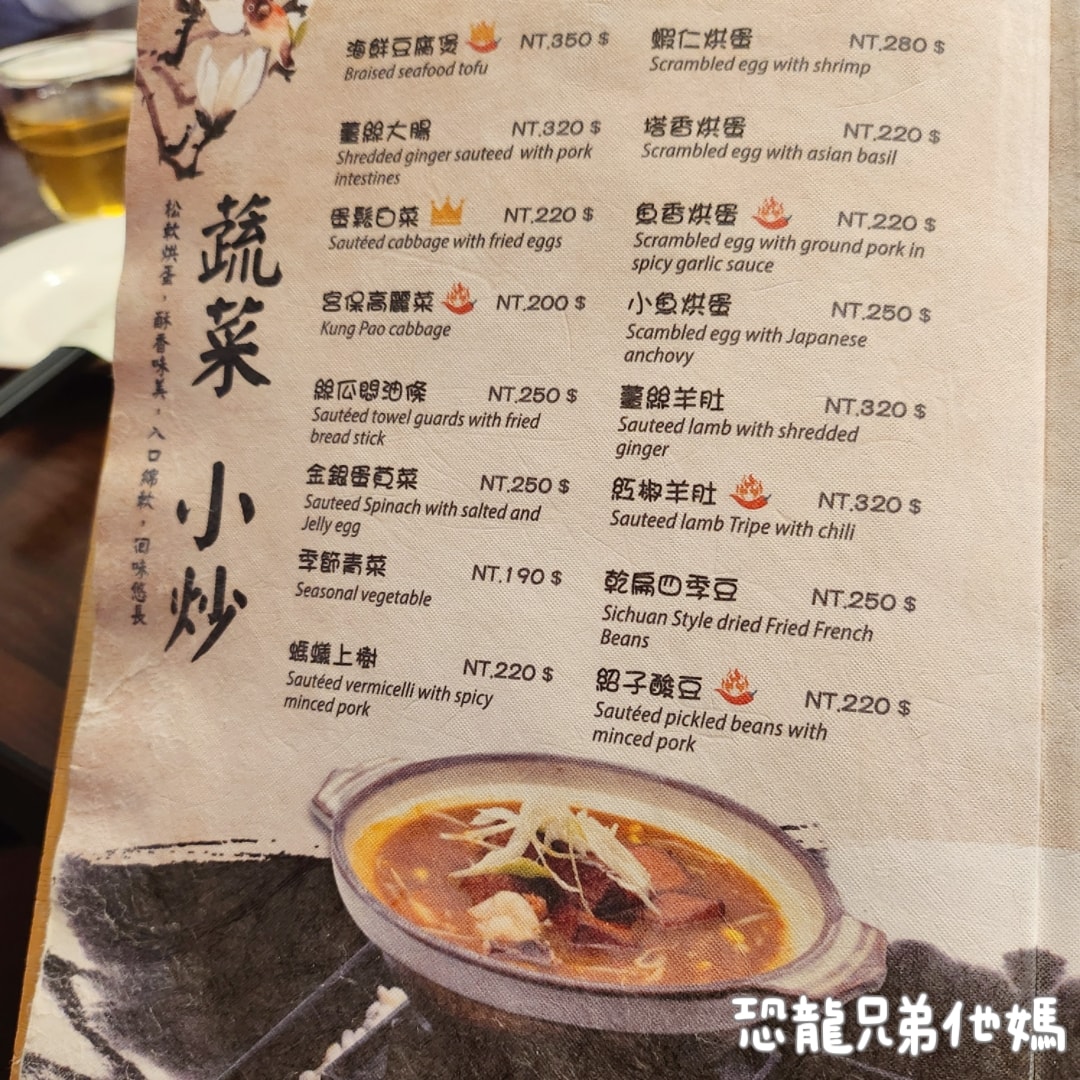 海鮮豆腐煲 NT.350 $
Braised seafood tofu
薑絲大腸 NT.320 $
Shredded ginger sauteed with pork
intestines
蛋鬆白菜 NT.220 $
Sautéed cabbage with fried eggs
宮保高麗菜 NT.200 $
Kung Pao cabbage
絲瓜悶油條 NT.250 $
Sautéed towel guards with fried
bread stick
金銀蛋莧菜 NT.250 $
Sauteed Spinach with salted and
Jelly egg
季節青菜 NT.190 $
Seasonal vegetable
螞蟻上樹 NT.220 $
Sautéed vermicelli with spicy
minced pork
蝦仁烘蛋 NT.280 $
Scrambled egg with shrimp
塔香烘蛋 NT.220 $
Scrambled egg with asian basil
魚香烘蛋 NT.220 $
Scrambled egg with ground pork in
spicy garlic sauce
小魚烘蛋 NT.250 $
Scambled egg with Japanese
anchovy
薑絲羊肚 NT.320 $
Sauteed lamb with shredded
ginger
紅椒羊肚 NT.320 $
Sauteed lamb Tripe with chili
乾扁四季豆 NT.250 $
Sichuan Style dried Fried French
Beans
紹子酸豆 NT.220 $
Sautéed pickled beans with
minced pork
蔬菜 小炒
松軟烘蛋，酥香味美，入口綿軟，回味悠長
恐龍兄弟他媽